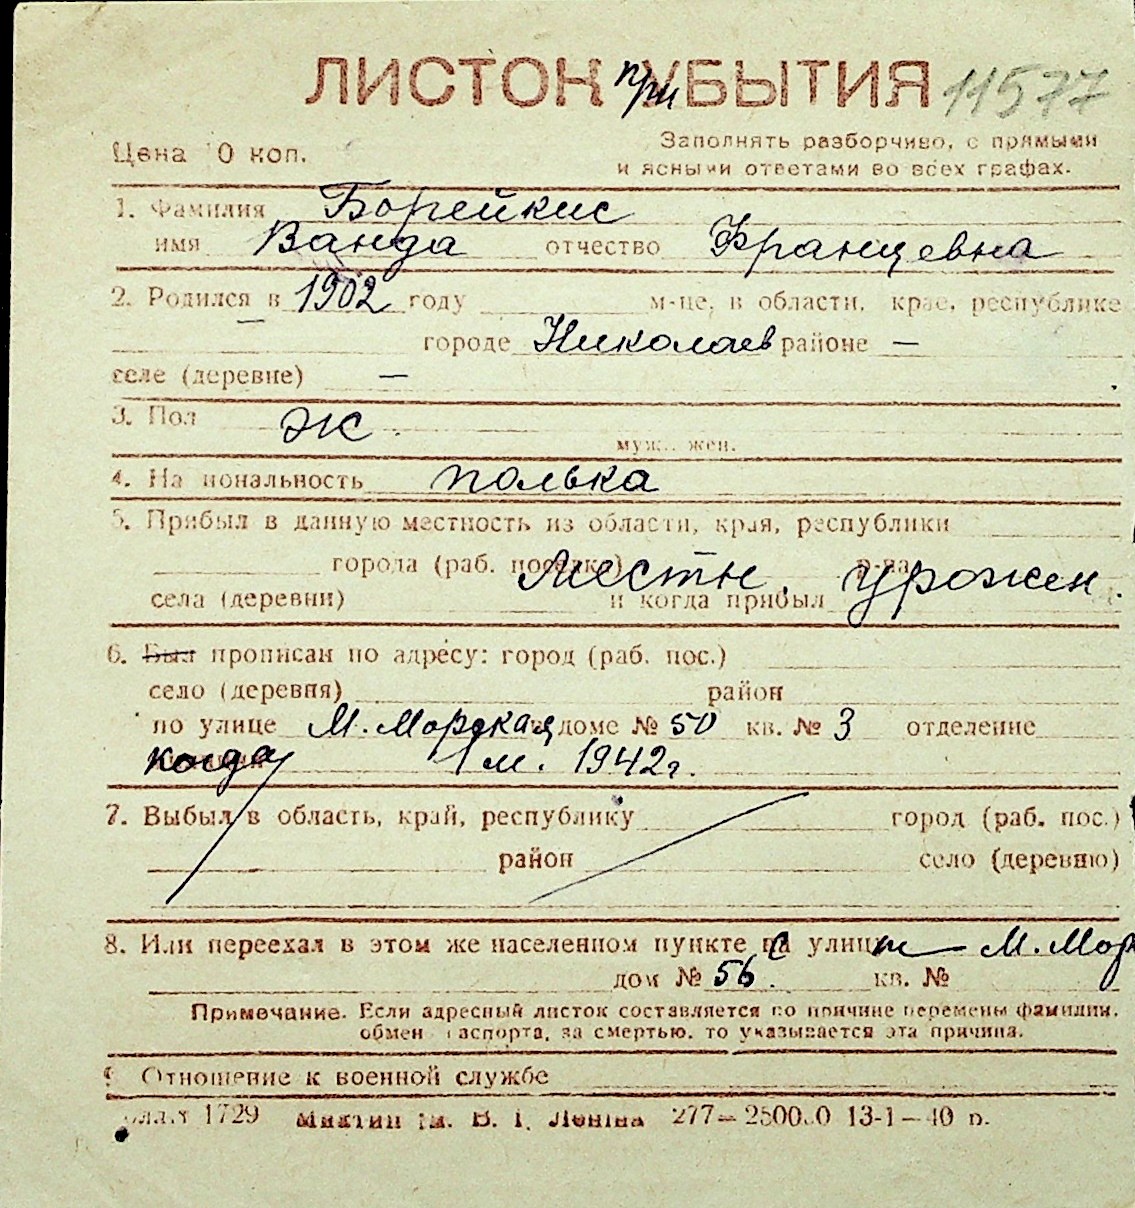 ЛИСТОК при УБЫТИЯ 11577
Цена 0 коп.
Заполнять разборчиво, с прямыми
и ясными ответами во всех графах.
1. Фамилия Борейкис
имя Ванда отчество Францевна
2. Родился в 1902 году м-це, в области, крае, республике
— городе Николаев районе —
селе (деревне) —
3. Пол ж.
муж., жен.
4. На иональность полька
5. Прибыл в данную местность из области, края, республики
города (раб. поселка) р-на
местн. урожен.
села (деревни) и когда прибыл
6. Был прописан по адресу: город (раб. пос.)
село (деревня) район
по улице М. Морская доме № 50 кв. № 3 отделение
когда 1 м. 1942 г.
7. Выбыл в область, край, республику город (раб. пос.)
район село (деревню)
8. Или переехал в этом же населенном пункте с улицы — М. Мор
дом № 56. кв. №
Примечание. Если адресный листок составляется по причине перемены фамилии,
обмен паспорта, за смертью, то указывается эта причина.
9 Отношение к военной службе
1729 В. І. Леніна 277— 13-1—40 р.